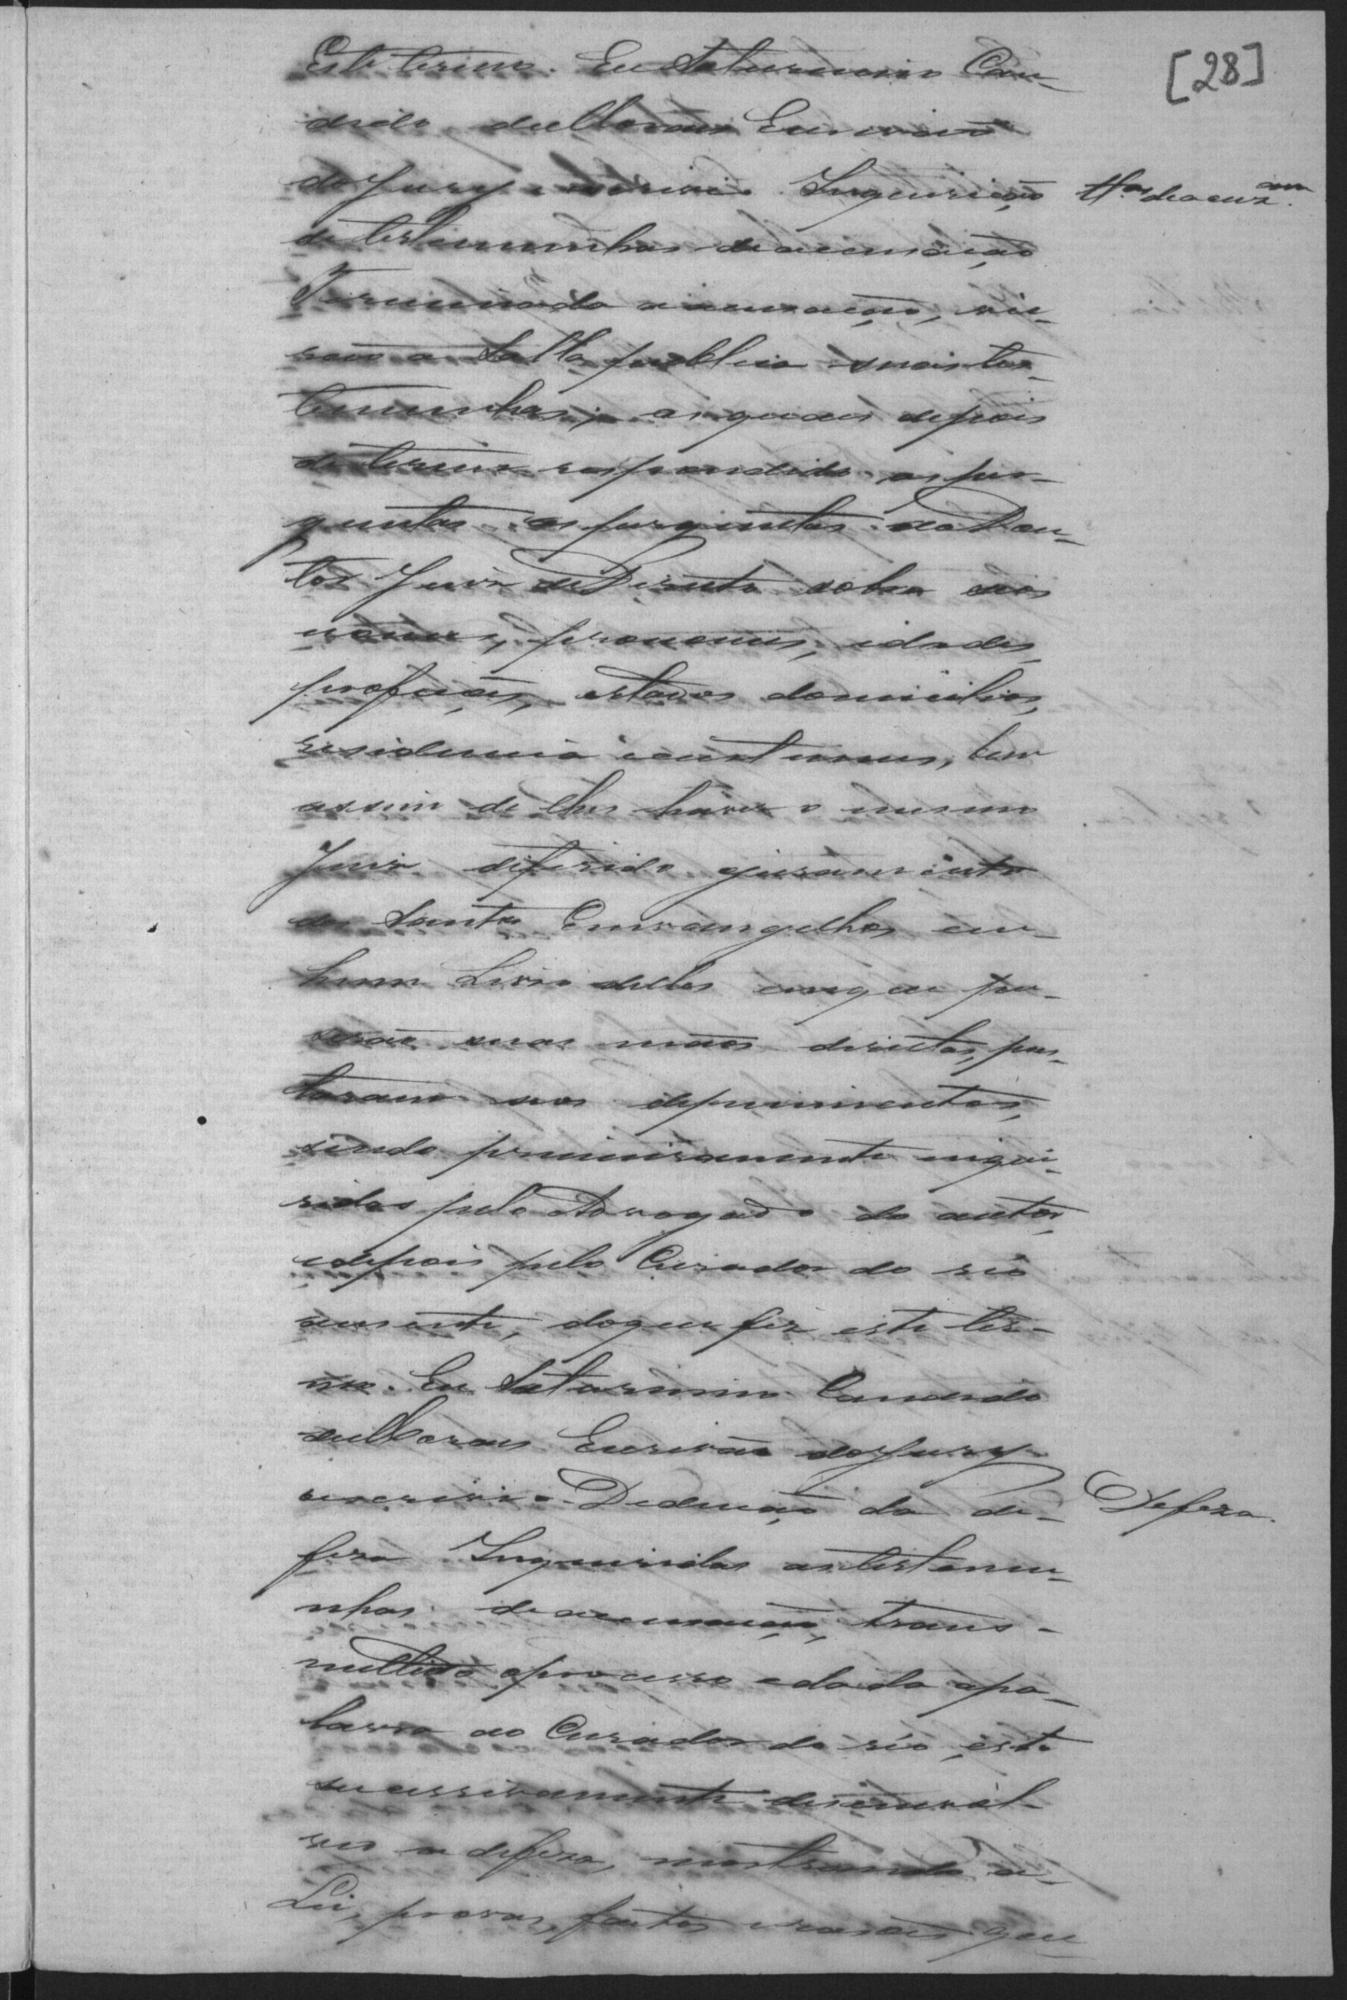 [28]
Este termo. Eu Saturnino Can-
dido de Moraes Escrivão
do Jury escrivi. Inquirição
de testimunhas de accusação
Terminada a accusação, vie-
rão a salla publica mais tes-
temunhas, as quaes depois
de terem respondido as per-
guntas as perguntas do Dou-
tor Juiz de Direito sobre seos
nomes, pronomes, idades,
profições, estados domicilios,
residencia e costumes, bem
assim de lhes haver o mesmo
Juiz deferido juramento
dos Santos Envangelhos em
hum Livro delles em que pu-
serão suas mãos direitas, pres-
tarão seos depuimentos,
sendo primeiramente inqui-
ridas pelo Advogado do autor,
e depois pelo Curador do réo
ausente, do que fiz este ter-
mo. Eu Saturnino Candido
de Moraes Escrivão do Jury
escrivi. Dedução da de-
feza Inqueridas as testemu-
nhas de accusação, trans-
mettido o processo e dada apa-
lavra ao Curador do réo, este
sucessivamente desinvol-
veo a defeza, mostrando a
Lei, provas, factos e rasões que
Tt.as de accuz.am
Defeza.